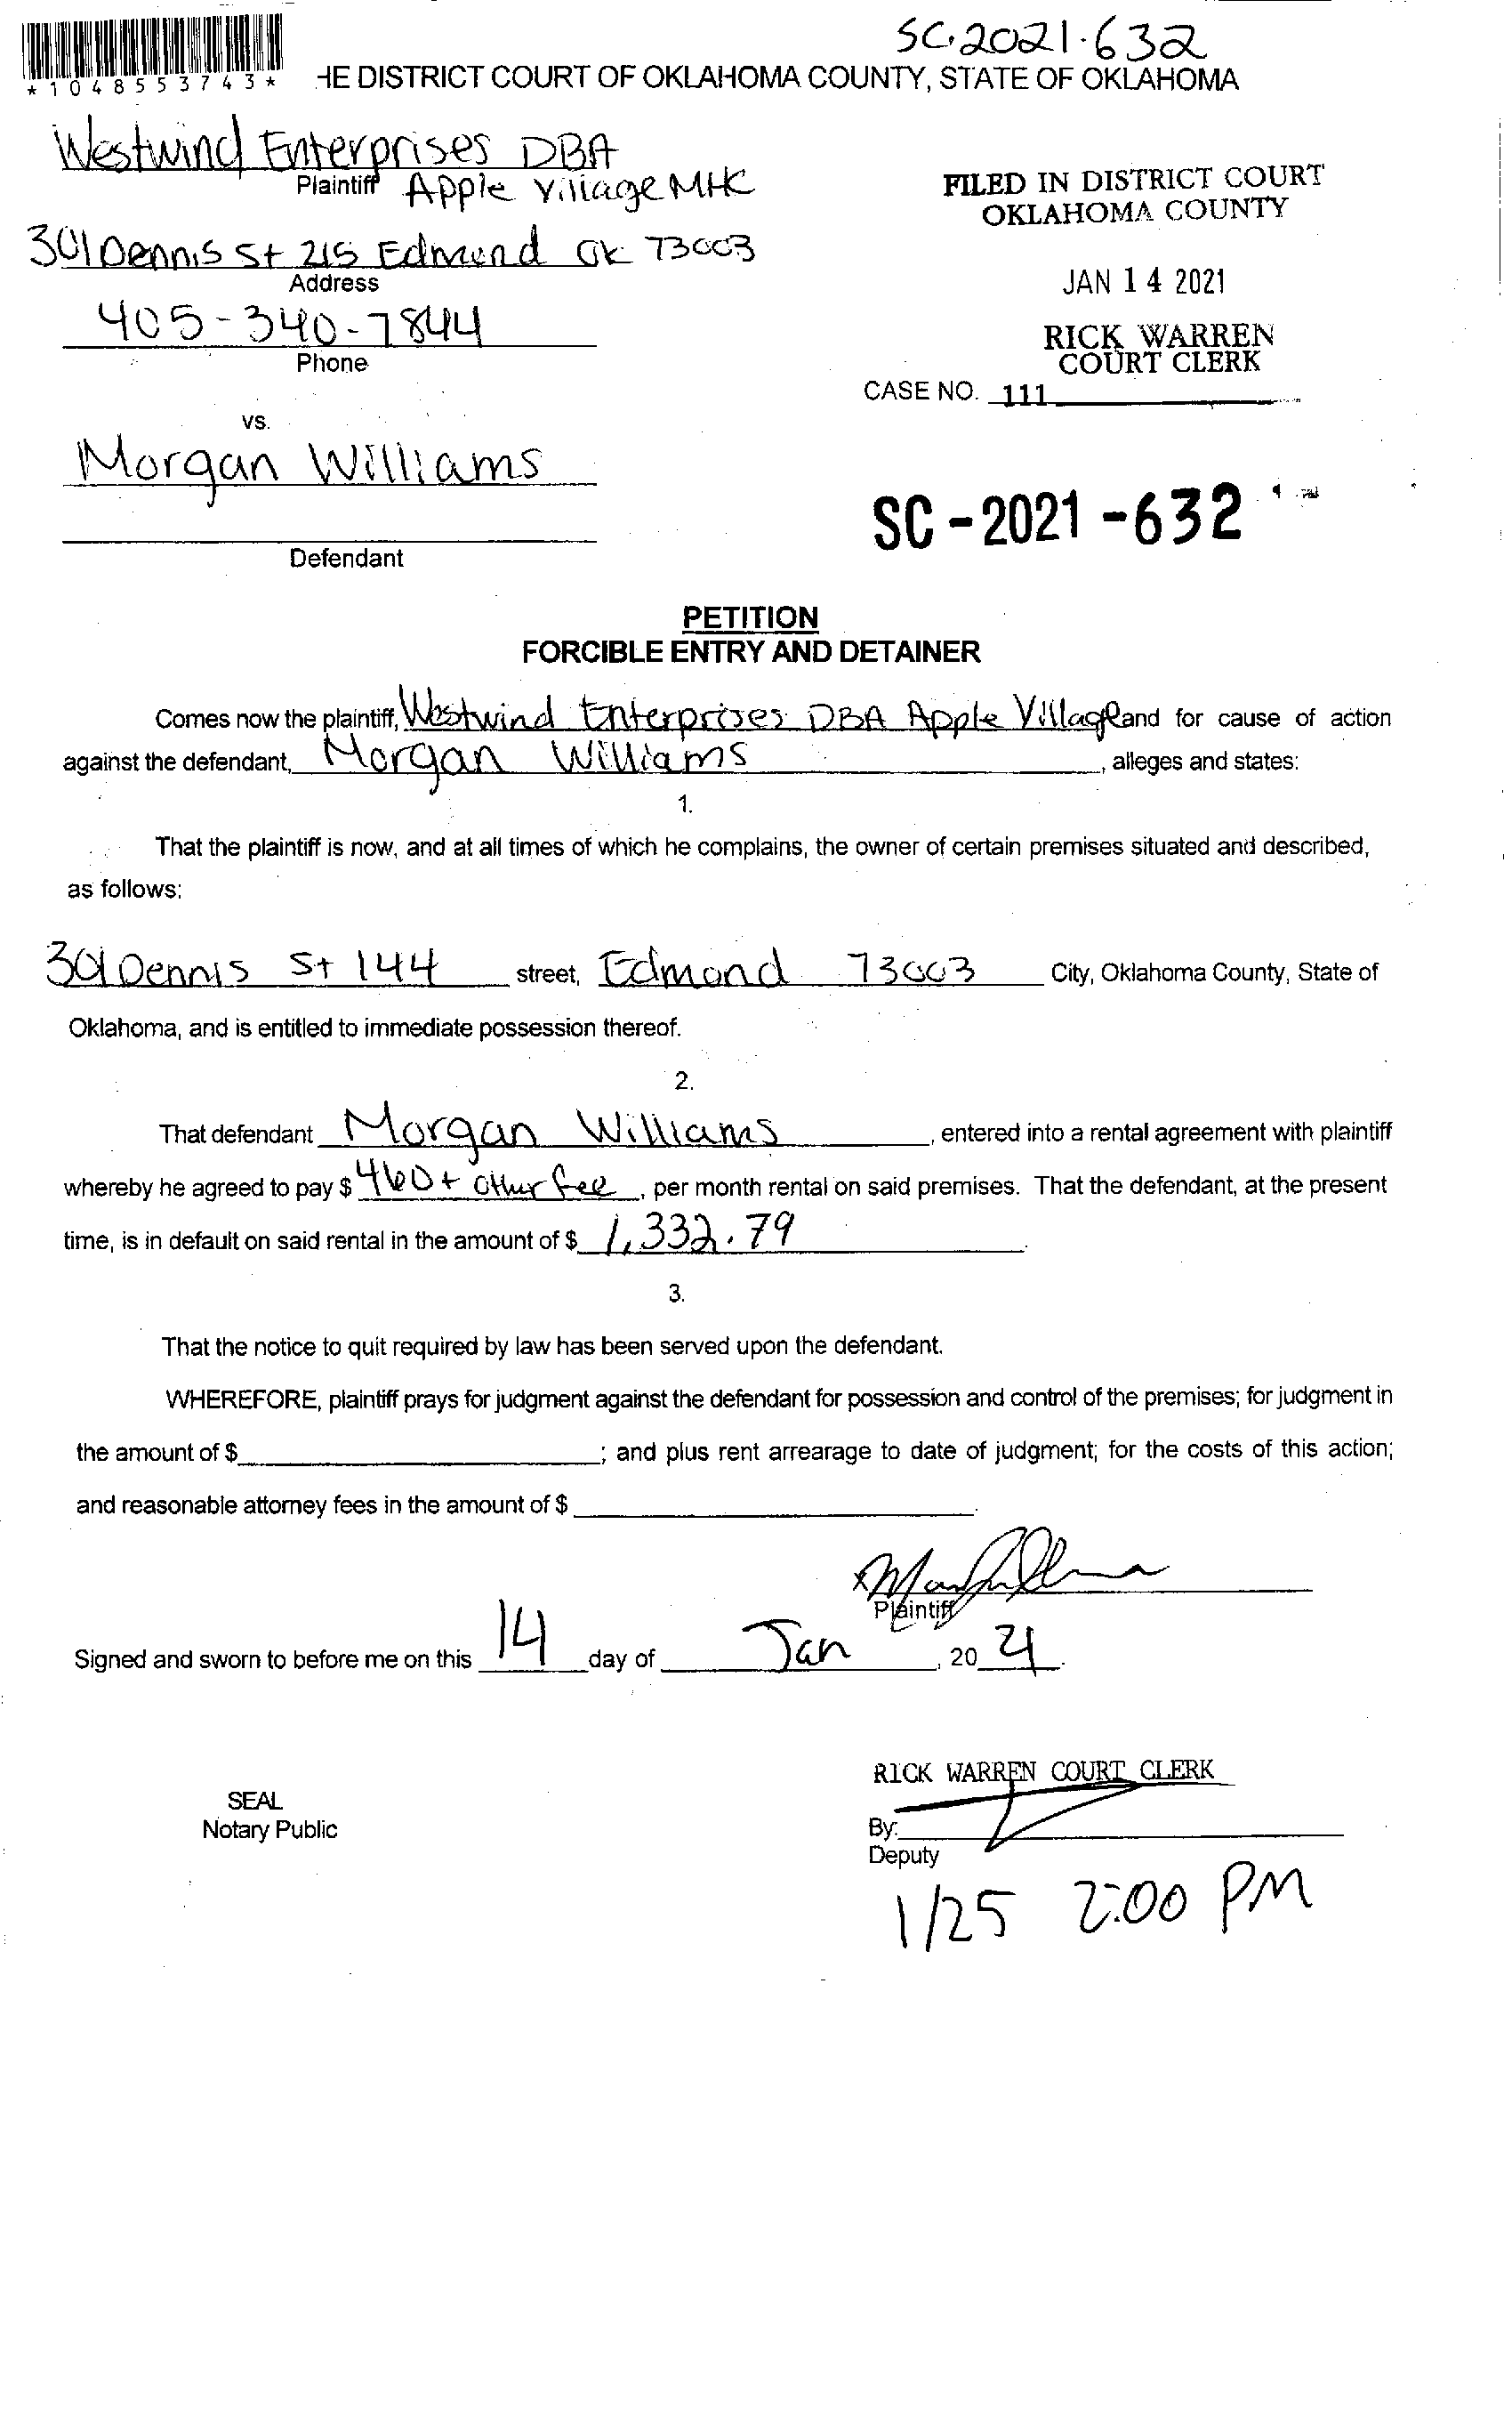 SC-2021-632
*1048553743*
HE DISTRICT COURT OF OKLAHOMA COUNTY, STATE OF OKLAHOMA
Westwind Enterprises DBA
Plaintiff Apple Village MHC
FILED IN DISTRICT COURT
OKLAHOMA COUNTY
301 Dennis St 215 Edmond OK 73003
Address
JAN 14 2021
405-340-7844
Phone
RICK WARREN
COURT CLERK
CASE NO. 111
vs.
Morgan Williams
SC-2021-632
Defendant
PETITION
FORCIBLE ENTRY AND DETAINER
Comes now the plaintiff, Westwind Enterprises DBA Apple Village and for cause of action
against the defendant, Morgan Williams, alleges and states:
1.
That the plaintiff is now, and at all times of which he complains, the owner of certain premises situated and described,
as follows:
301 Dennis St 144 street, Edmond 73003 City, Oklahoma County, State of
Oklahoma, and is entitled to immediate possession thereof.
2.
That defendant Morgan Williams, entered into a rental agreement with plaintiff
whereby he agreed to pay $ 460 + other fee, per month rental on said premises. That the defendant, at the present
time, is in default on said rental in the amount of $ 1,332.79.
3.
That the notice to quit required by law has been served upon the defendant.
WHEREFORE, plaintiff prays for judgment against the defendant for possession and control of the premises; for judgment in
the amount of $ ; and plus rent arrearage to date of judgment; for the costs of this action;
and reasonable attorney fees in the amount of $ .
x
Plaintiff
Signed and sworn to before me on this 14 day of Jan, 20 21.
RICK WARREN COURT CLERK
SEAL
Notary Public
By:
Deputy
1/25 2:00 PM